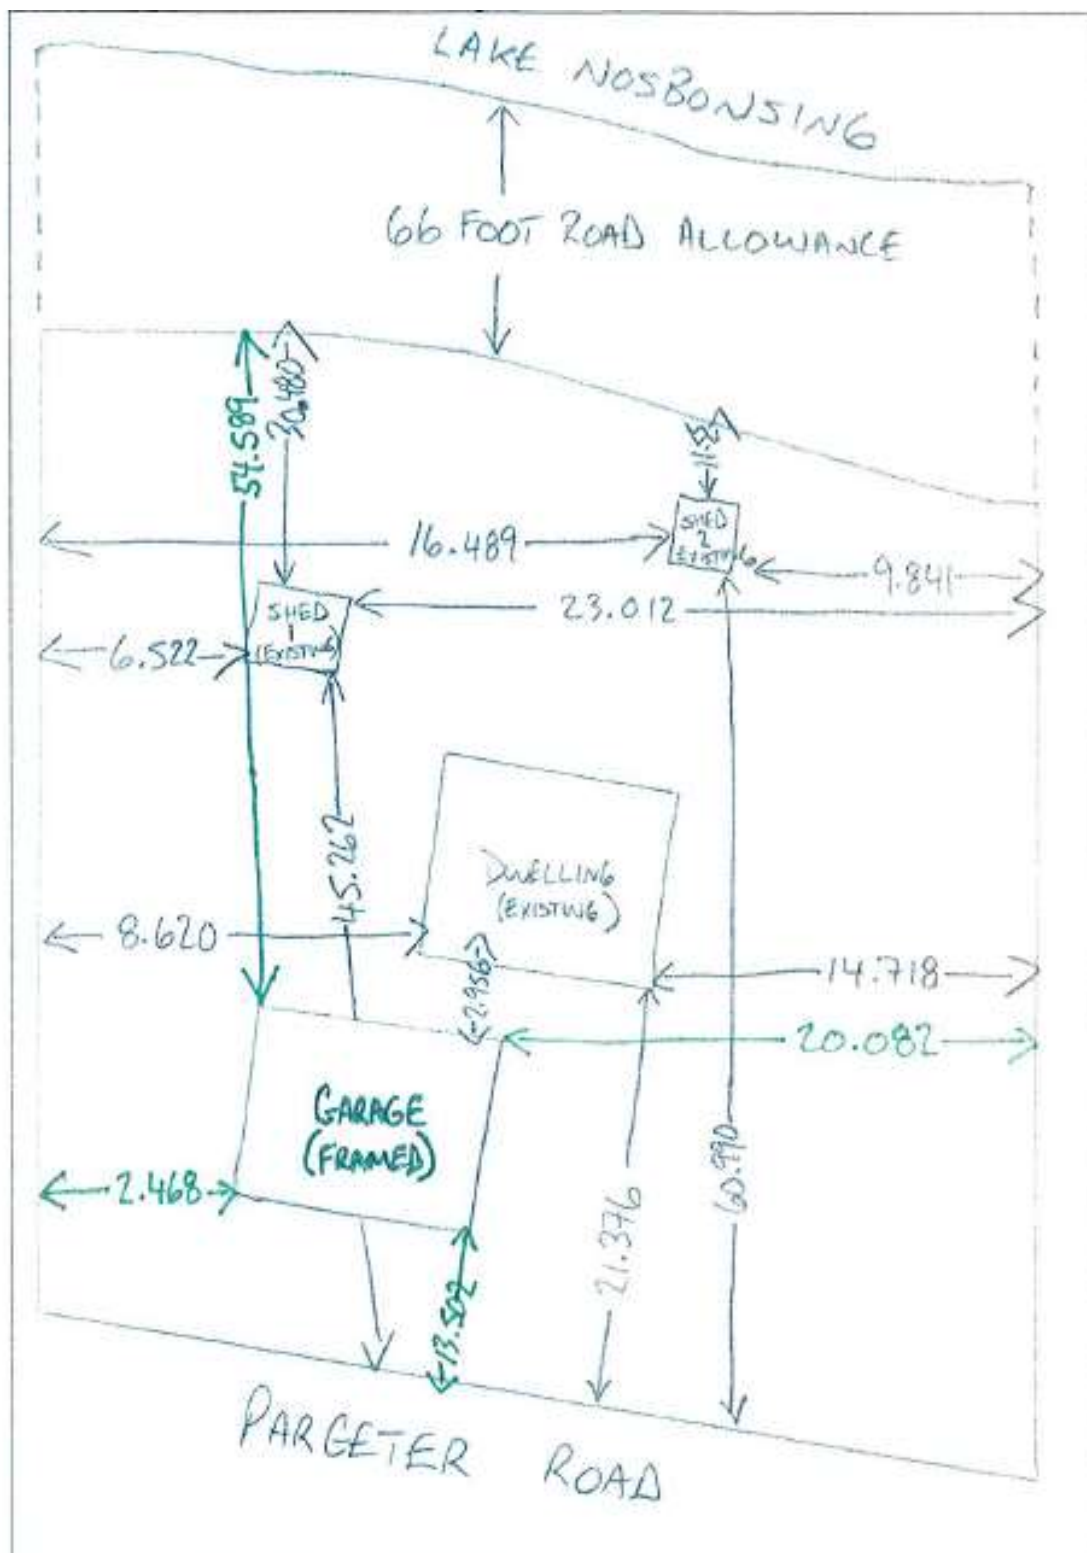 LAKE NOSBONSING
66 FOOT ROAD ALLOWANCE
54.589
30.480
16.489
SHED
2
EXISTING
9.841
23.012
SHED
1
(EXISTING)
6.522
45.262
DWELLING
(EXISTING)
8.620
2.956
14.718
20.082
GARAGE
(FRAMED)
2.468
13.502
21.376
60.990
PARGETER ROAD